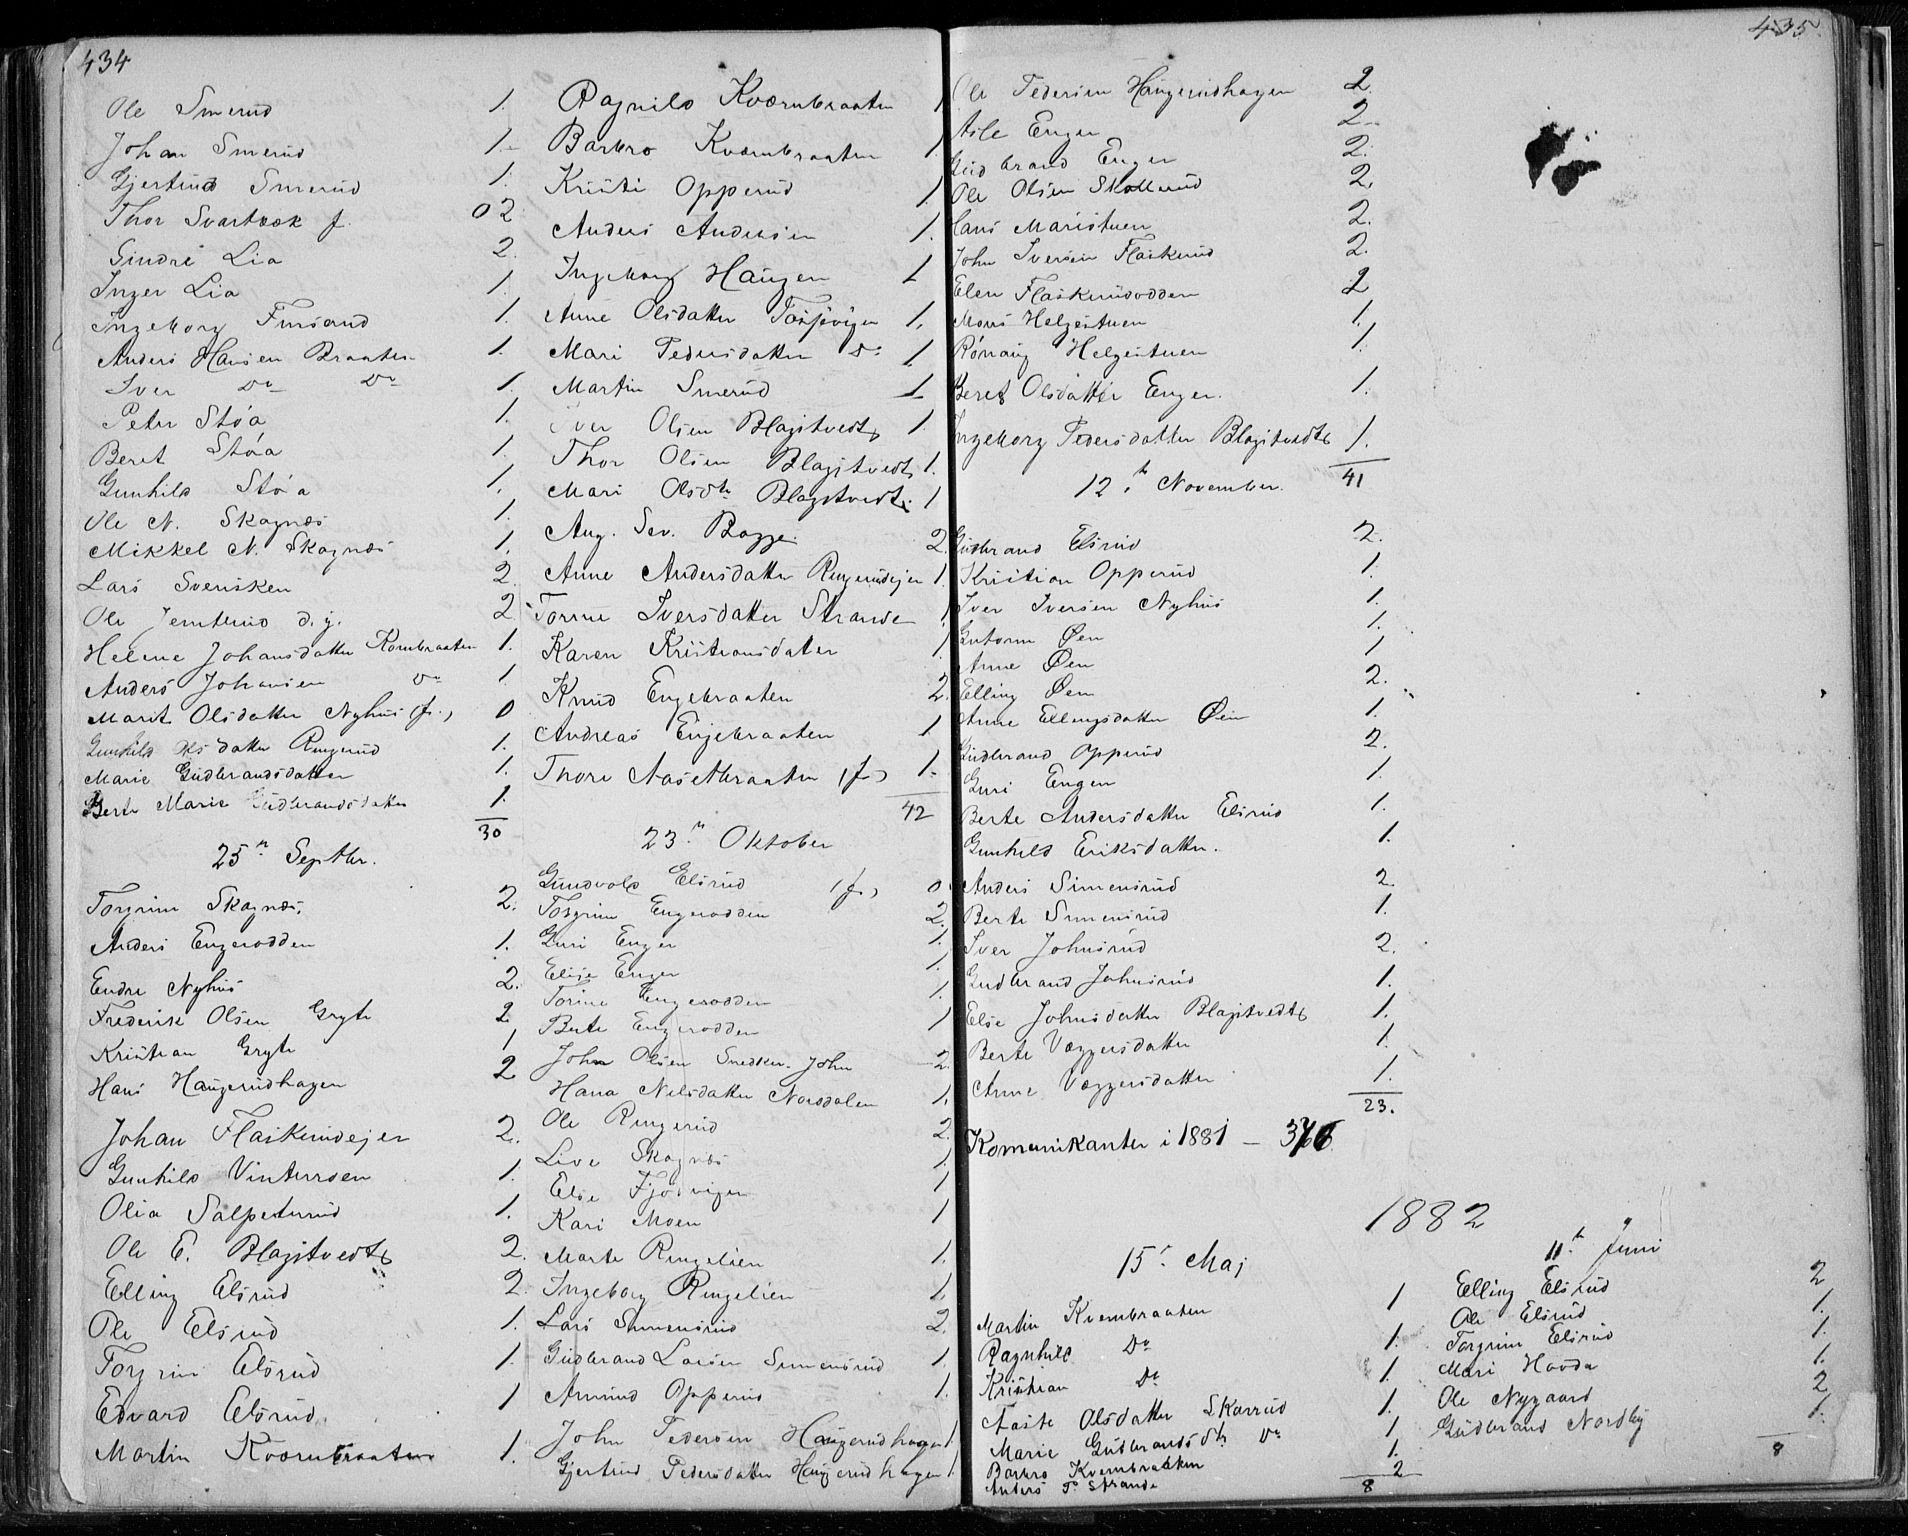 434
Ole Smerud 1.
Johan Smerud 1.
Gjertrud Smerud 1.
Thor Svartbæk f. 02
Sindre Lia 2.
Inger Lia 1.
Ingeborg Fursand 1.
Anders Hansen Braaten 1.
Iver Do Do 1.
Peter Støa 1.
Beret Støa 1.
Gunhild Støa 1.
Ole N. Skagnæs 1.
Mikkel N. Skagnæs 1.
Lars Svensken 2.
Ole Jemterud d.y. 2
Helene Johansdatter Kornbraaten 1.
Anders Johansen Do 1.
Marit Olsdatter Nyhus (f.) 0
Gunhild Olsdatter Ringerud 1.
Marie Gudbrandsdatter 1.
Berte Marie Gudbrandsdatter 1.
30
25n Septbr.
Torgrim Skagnæs, 2.
Anders Engerodden 1.
Endre Nyhus 2.
Frederik Olsen Gryte 2
Kristian Gryte 1
Hans Haugerudhagen 2
Johan Flaskerudejer 2.
Gunhild Vinterroen 1.
Olia Salpeterrud 1.
Ole E. Blagstvedt 2.
Elling Elsrud 2.
Ole Elsrud 1.
Torgrim Elsrud 1.
Edvard Elsrud. 1
Martin Kvernbraaten 1.
Ragnild Kværnbraaten 1
Barbro Kværnbraaten 1
Kristi Opperud 1
Anders Andersen 1.
Ingeborg Haugen 1
Anne Olsdatter Fossjøvigen 1.
Mari Pedersdatter Do 1
Martin Smerud 1
Iver Olsen Blagstvedt 1.
Thor Olsen Blagstvedt 1.
Mari Olsdtr Blagstvedt. 1
Aug. Sev. Bagge. 2
Anne Andersdatter Ringerudejer 1.
Torine Iversdatter Strande 1
Karen Kristiansdatter 1
Knud Engebraaten 2.
Andreas Engebraaten 1
Thore Aasetbraaten (f.) 1.
42
23n Oktober
Gundvold Elsrud (f.) 0
Torgrim Engerodden 2.
Guri Enger 1.
Elise Enger 1.
Torine Engerodden 1
Berte Engerodden 1
John Olsen Snedker-John 2.
Hana Nilsdatter Norddalen 1.
Ole Ringerud 2.
Live Skagnæs 1
Else Fjosvigen 1
Kari Moen 1
Marte Ringelien 1.
Ingeborg Ringelien 1.
Lars Simensrud 2.
Gudbrand Larsen Simensrud 1.
Amund Opperud 1.
John Pedersen Haugerudhagen 1.
Gjertrud Pedersdatter Haugerudhagen 1.
435.
Ole Pedersen Haugerudhagen 2.
Asle Enger 2
Gudbrand Enger 2.
Ole Olsen Skollerud 2.
Hans Maristuen 2.
John Iversen Flaskerud 2.
Elen Flaskerudodden 2
Mons Helgestuen 1.
Rønnaug Helgestuen 1.
Beret Olsdatter Enger. 1.
Ingeborg Pedersdatter Blagstvedt 1.
41
12.te November.
Gudbrand Elsrud 2.
Kristian Opperud 1.
Iver Iversen Nyhus 1.
Gutorm Øen 1.
Anne Øen 1
Elling Øen 2.
Anne Ellingsdatter Øen 1.
Gudbrand Opperud 2.
Guri Engen 1.
Berte Andersdatter Elsrud 1.
Gunhild Eriksdatter. 1.
Anders Simensrud 2.
Berte Simensrud 1.
Iver Johnsrud 2.
Gudbrand Johnsrud 1.
Else Johnsdatter Blagstvedt 1.
Berte Væggersdatter 1.
Anne Væggersdatter 1.
23.
Komunikanter i 1881 — 376
1882
15.de Maj
Martin Kvernbraaten 1
Ragnhild Do 1.
Kristian Do 1.
Aaste Olsdatter Skarrud 1.
Marie Gudbrandsdtr Do 1
Barbro Kvernbraaten 1.
Anders P. Strande 2
8
11.te Juni
Elling Elsrud 2
Ole Elsrud 1.
Torgrim Elsrud 1.
Mari Hovda 1.
Ole Nygaard 2
Gudbrand Nordby 1.
8